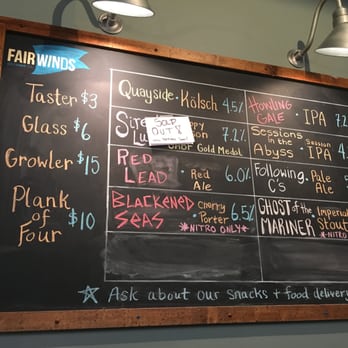 FAIR WINDS
Taster $3
Glass $6
Growler $15
Plank
of $10
Four
Quayside · Kölsch 4.5%
SOLD
OUT
7.2%
GABF Gold Medal
RED
LEAD · Red
Ale 6.0%
BLACKENED
SEAS · Cherry
Porter 6.5%
*NITRO ONLY*
HOWLING
GALE · IPA 7.
Sessions
in the
Abyss · Session
IPA 4.
Following
C's · Pale
GHOST of the
MARINER · Imperial
Stout
*NITRO
☆ Ask about our snacks + food delivery